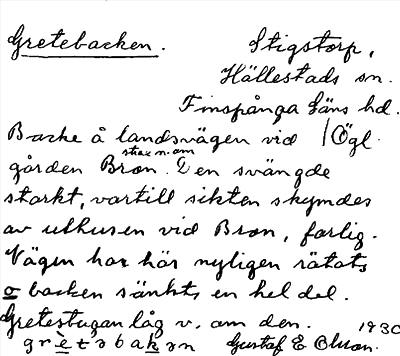 Gretebacken.
Stigstorp,
Hällestads sn.
Finspånga läns hd.
Backe å landsvägen vid /Ögl.
strax n. om
gården Bron. Den svängde
starkt, vartill sikten skymdes
av uthusen vid Bron, farlig.
Vägen har här nyligen rätats
o backen sänkts en hel del.
Gretestugan låg v. om den. 1930
gretəbakən Gustaf E Olson.